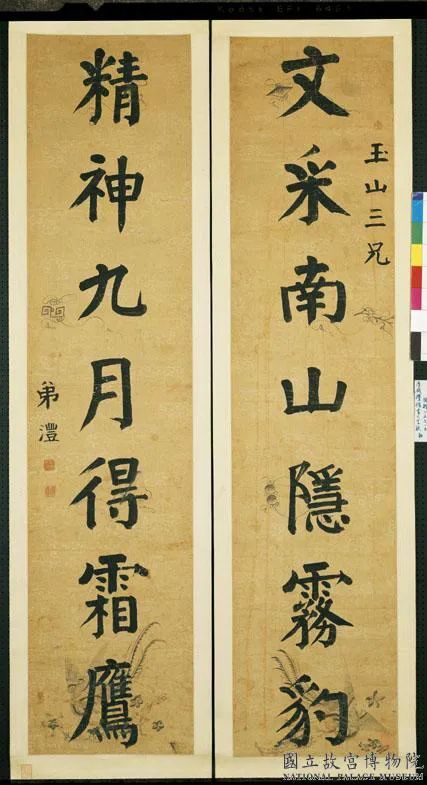 玉山三兄
文采南山隱霧豹
精神九月得霜鷹
弟澧
國立故宮博物院
NATIONAL PALACE MUSEUM